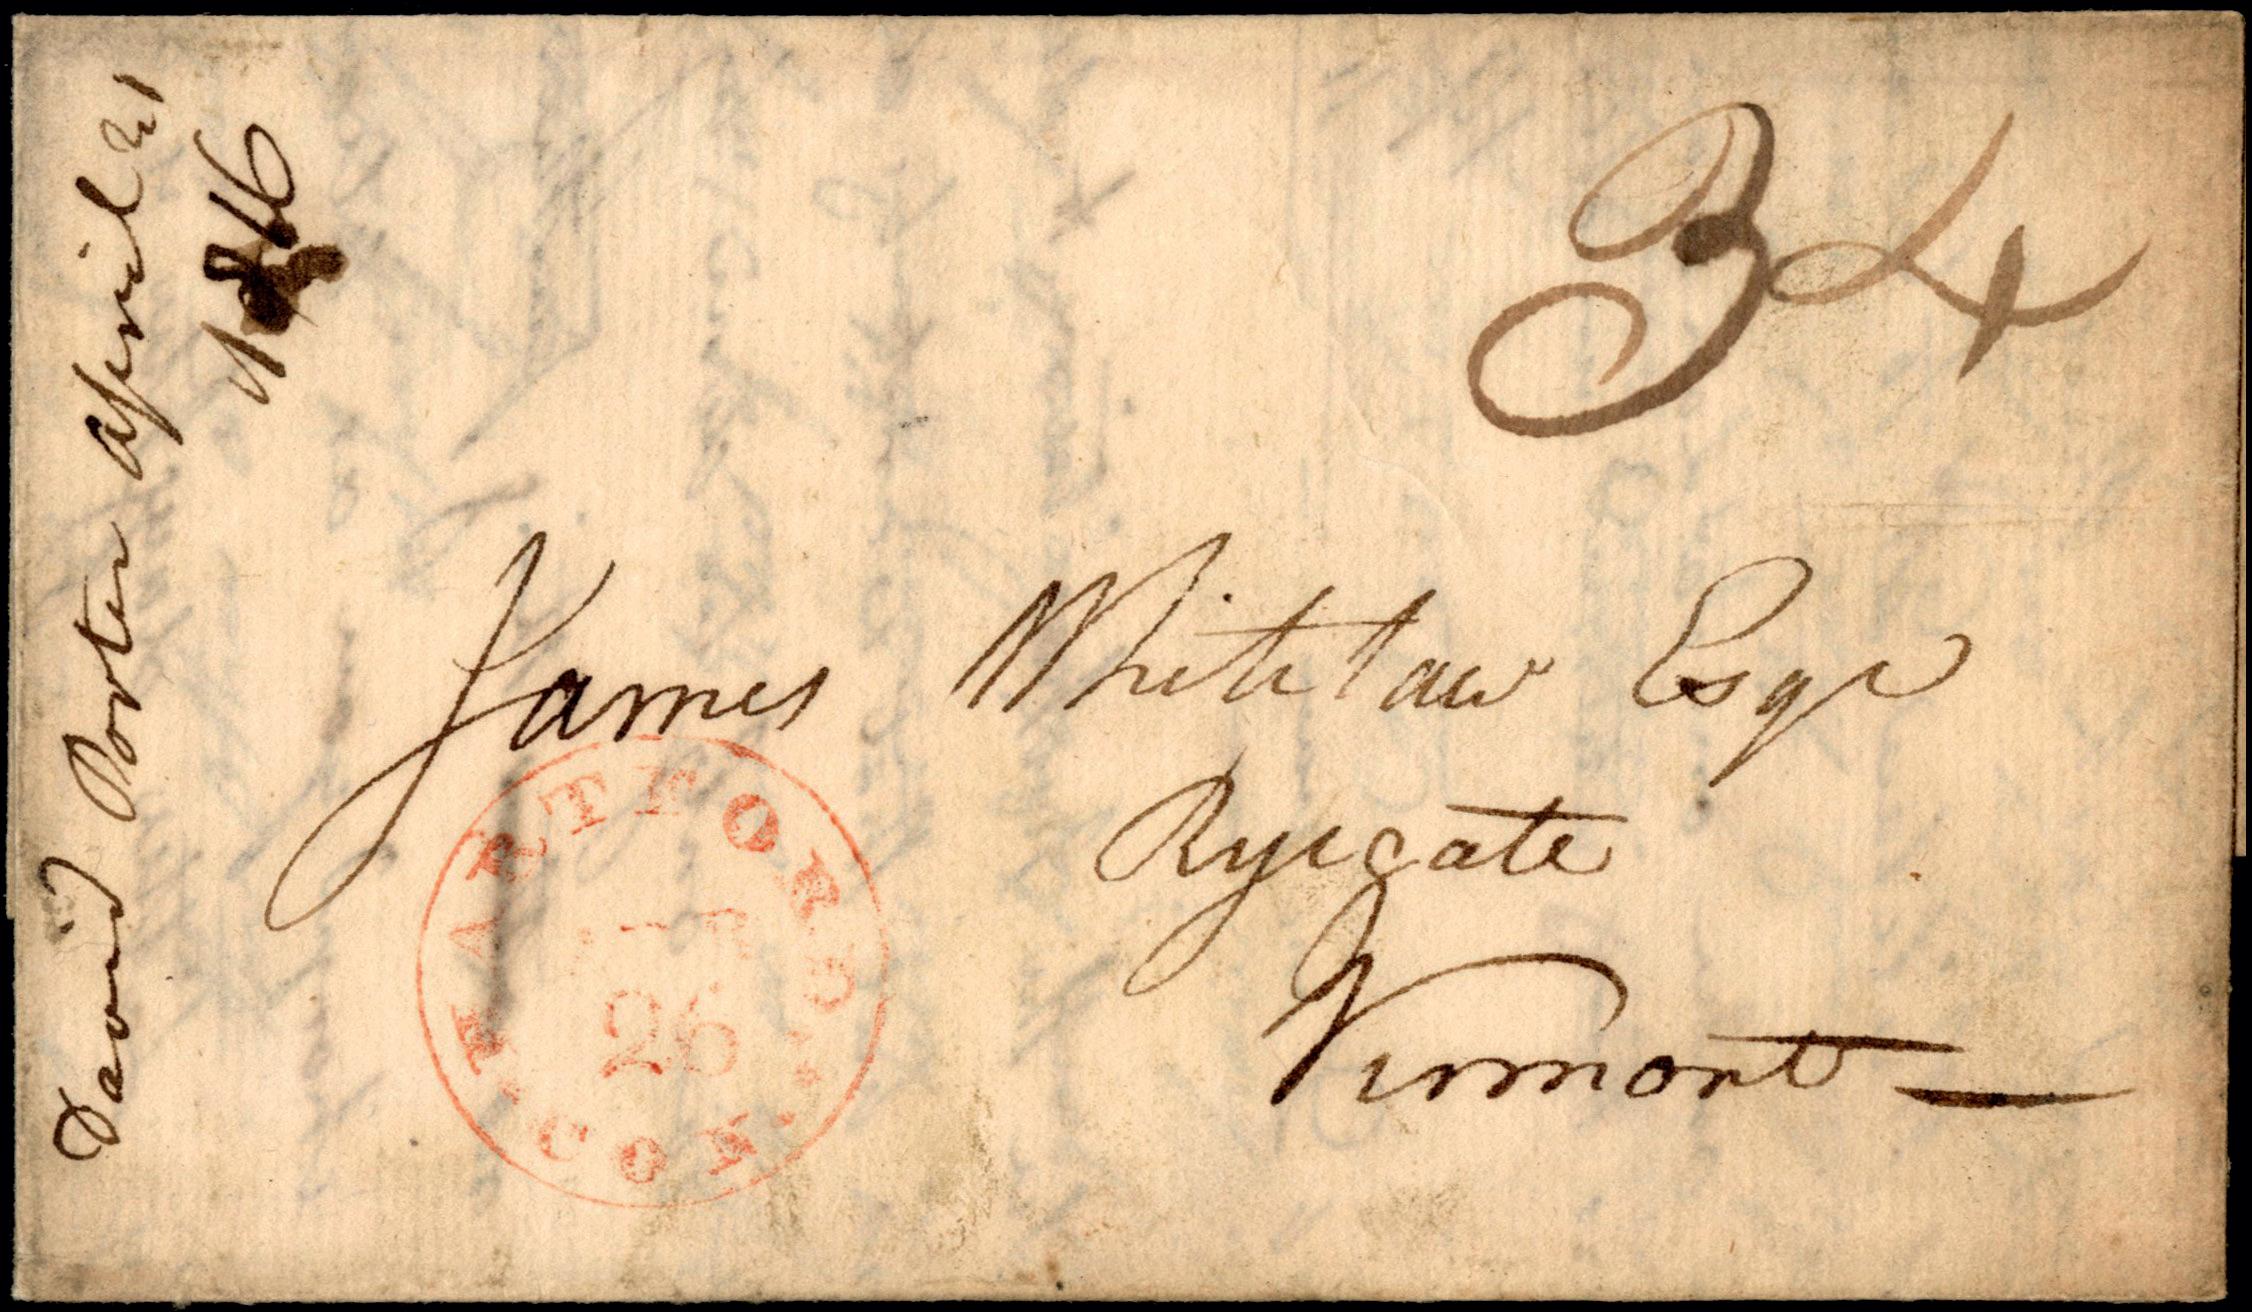 David Porter april 21
1816
34
James Whitelaw Esqr
Ryegate
Vermont
HARTFORD
26
CON.